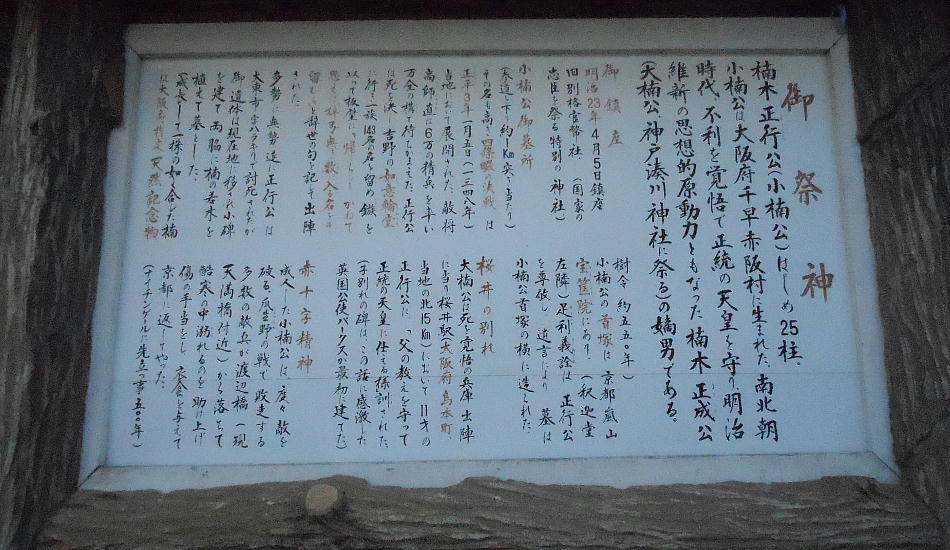 御祭神
楠木正行公(小楠公)はじめ25柱。
小楠公は大阪府千早赤阪村に生まれた。南北朝
時代、不利を覚悟で正統の天皇を守り、明治
維新の思想的原動力ともなった楠木正成公
(大楠公、神戸湊川神社に祭る)の嫡男である。
御鎮座
明治23年4月5日鎮座
旧別格官幣社。(国家の
忠臣を祭る特別の神社)
小楠公御墓所
(参道を下り約1Km突き当たり)
その名も高き四條畷の決戦は
正平3年一月五日(一三四八年)
当地において展開された。敵将
高師直は6万の精兵を率い
万全の構で待ちかまえた。正行公
は死を決し吉野の如意輪堂
に行き一族143名の名を留め鏃を
以って板壁に、帰らじとかねて
思へば梓弓無き数に入る名をぞ
留むるの辞世の句を記して出陣
された。
多勢に無勢、遂に正行公は
大東市で討死されたが
御遺体は現在地に移され小碑
を建て両脇に楠の若木を
植えて墓とした。
(成長して一株の如く合した楠
は大阪府指定天然記念物
樹令約五五〇年)
小楠公の首塚は京都嵐山
宝筐院にあり。(釈迦堂
左隣)足利義詮は正行公
を尊敬し遺言により墓は
小楠公首塚の横に造られた。
桜井の別れ
大楠公は死を覚悟の兵庫出陣
に当り桜井駅(大阪府島本町、
当地の北15Km)において11才の
正行公に、「父の教えを守って
正統の天皇に仕える様訓された。
(子別れの碑は、この話に感激した
英国公使パークスが最初に建てた)
赤十字精神
成人した小楠公は、度々敵を
破る。瓜生野の戦で敗走する
多数の敵兵が渡辺橋(現
天満橋付近)から落ちて
酷寒の中溺れるのを助け上げ
傷の手当をし、衣食を与えて
京都に返してやった。
(ナイチンゲールに先立つ事五〇〇年)